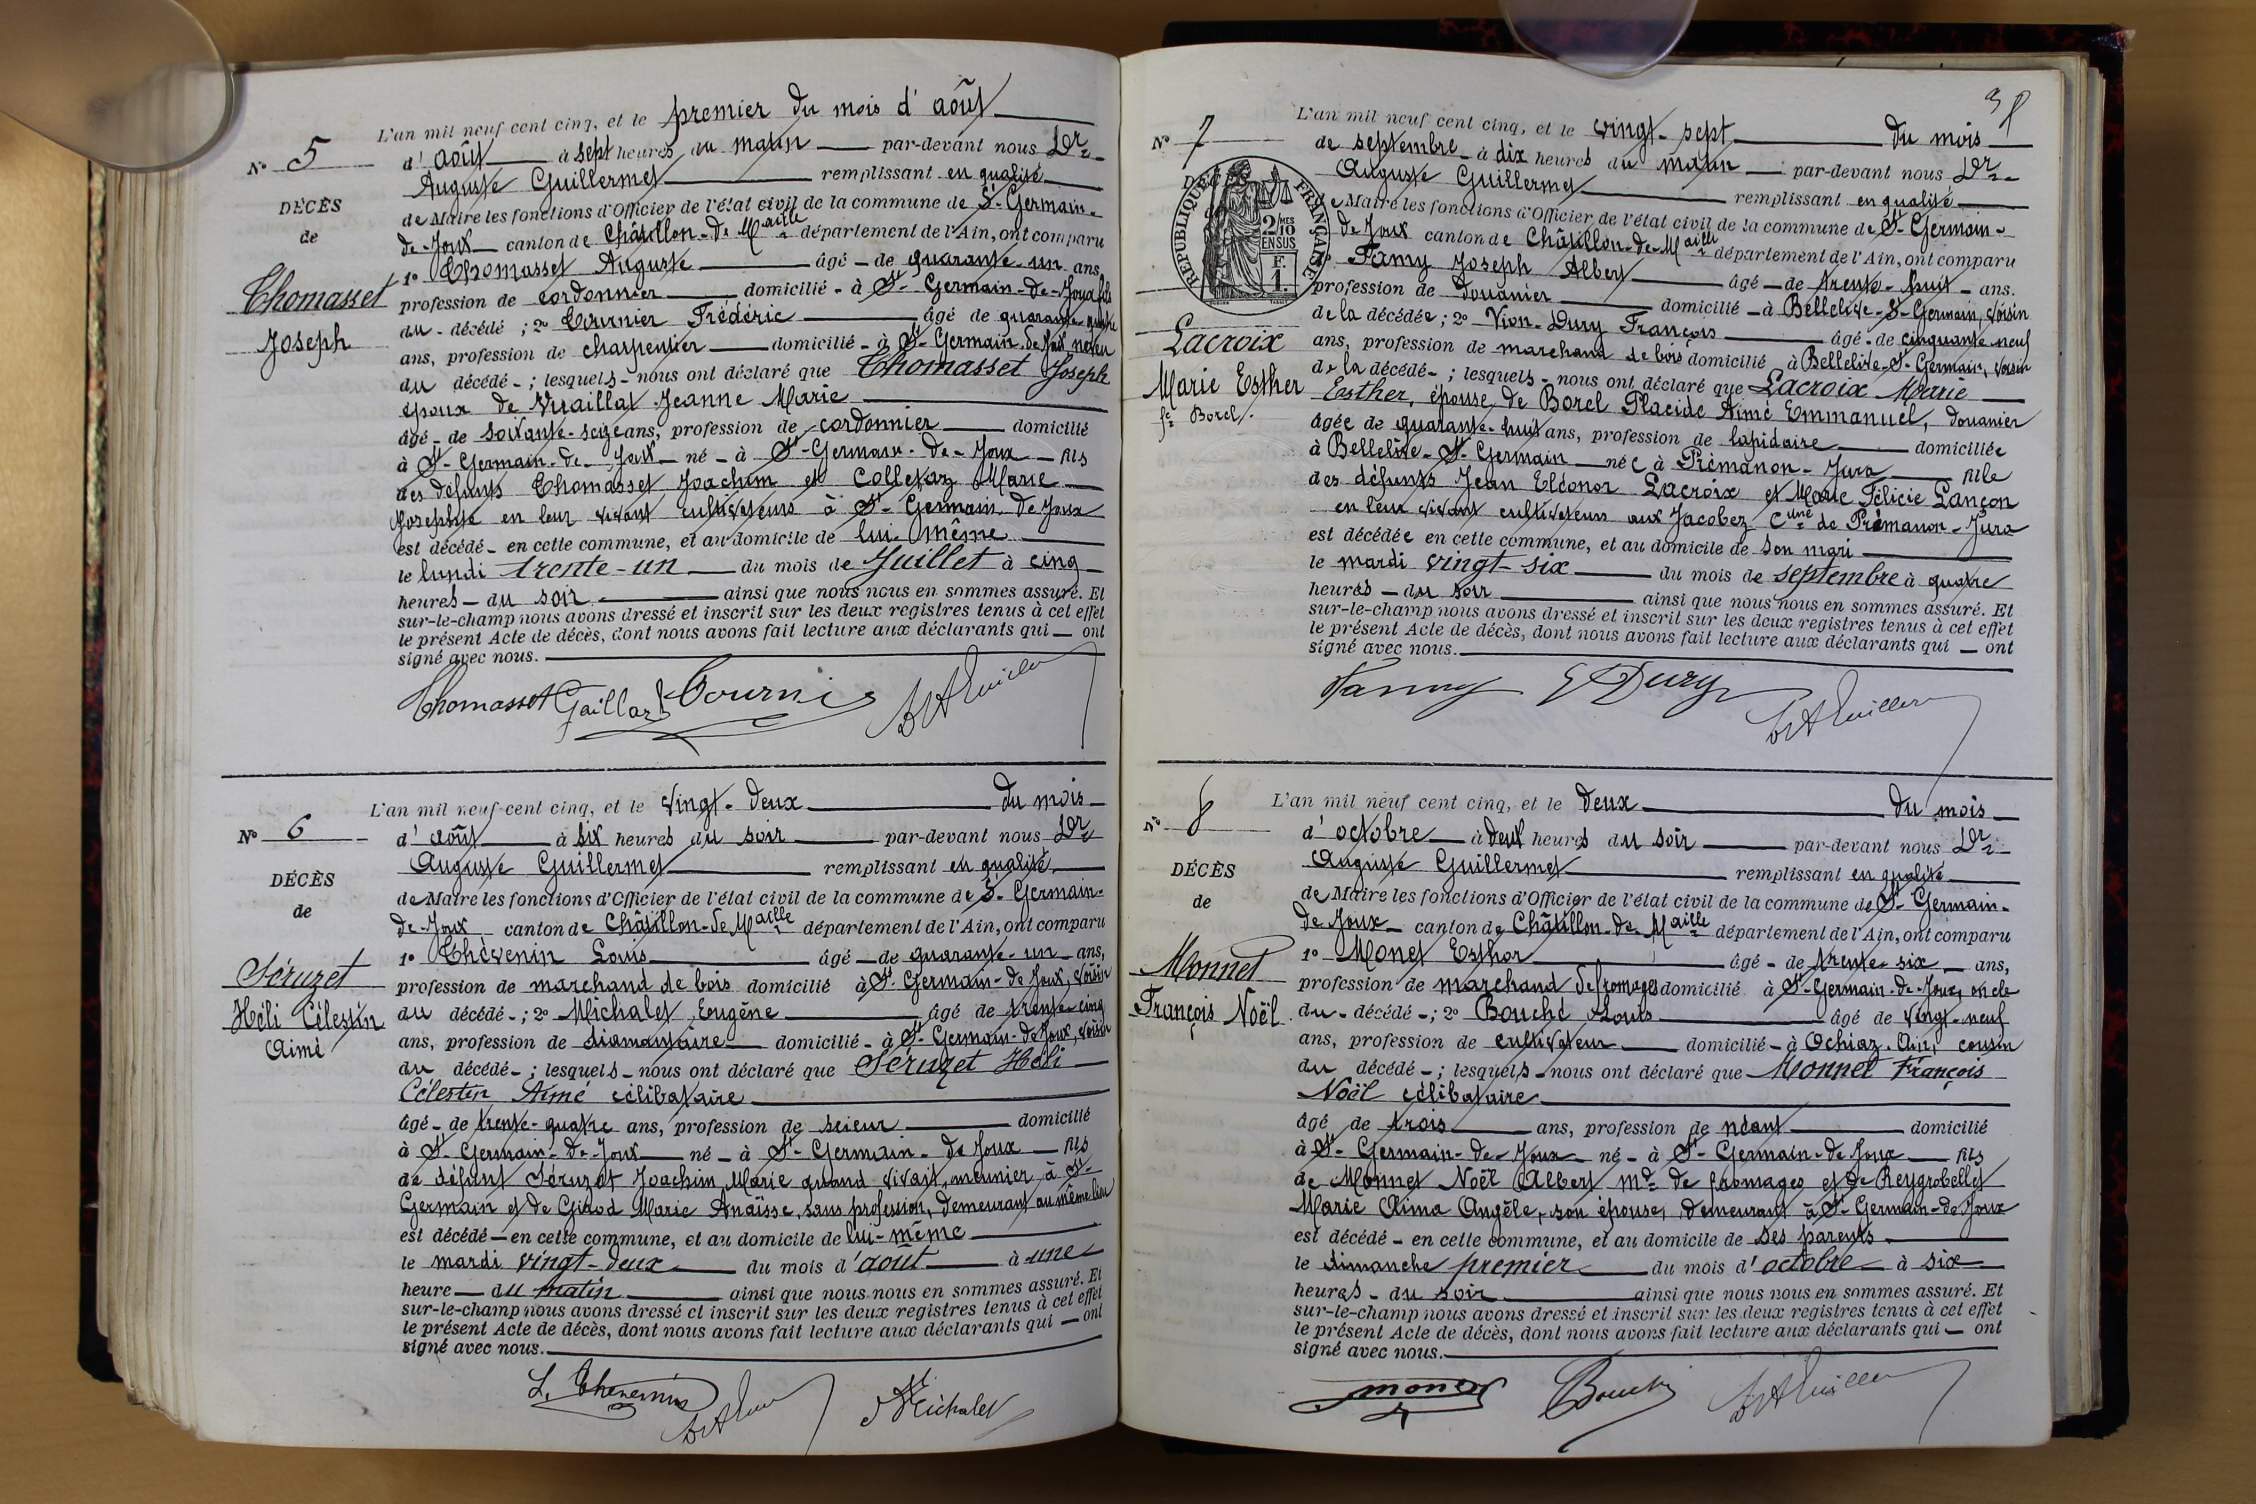 L'an mil neuf cent cinq, et le premier du mois d'août
N° 5
d'août à sept heures du matin par-devant nous Dr
Auguste Guillermet remplissant en qualité
DÉCÈS
de Maire les fonctions d'Officier de l'état civil de la commune de St-Germain-
de
de-Joux canton de Châtillon-de-Maille département de l'Ain, ont comparu
1° Thomasset Auguste âgé de quarante-un ans,
Thomasset
profession de cordonnier domicilié à St-Germain-de-Joux fils
du décédé ; 2° Tournier Frédéric âgé de quarante-quatre
Joseph
ans, profession de charpentier domicilié à St-Germain-de-Joux, neveu
du décédé ; lesquels nous ont déclaré que Thomasset Joseph
époux de Vuaillat Jeanne Marie
âgé de soixante-seize ans, profession de cordonnier domicilié
à St-Germain-de-Joux né à St-Germain-de-Joux fils
des défunts Thomasset Joachim et Colletaz Marie
Josephte en leur vivant cultivateurs à St-Germain-de-Joux
est décédé en cette commune, et au domicile de lui-même
le lundi trente-un du mois de Juillet à cinq
heures du soir ainsi que nous nous en sommes assuré. Et
sur-le-champ nous avons dressé et inscrit sur les deux registres tenus à cet effet
le présent Acte de décès, dont nous avons fait lecture aux déclarants qui ont
signé avec nous.
Thomasset Gaillard Tournier
L'an mil neuf cent cinq, et le vingt-deux du mois
N° 6
d'août à six heures du soir par-devant nous Dr
Auguste Guillermet remplissant en qualité
DÉCÈS
de Maire les fonctions d'Officier de l'état civil de la commune de St-Germain-
de
de-Joux canton de Châtillon-de-Maille département de l'Ain, ont comparu
1° Thévenin Louis âgé de quarante-un ans,
Séruzet
profession de marchand de bois domicilié à St-Germain-de-Joux, voisin
Héli Célestin
du décédé ; 2° Michalet Eugène âgé de trente-cinq
Aimé
ans, profession de diamantaire domicilié à St-Germain-de-Joux, voisin
du décédé ; lesquels nous ont déclaré que Séruzet Héli
Célestin Aimé célibataire
âgé de trente-quatre ans, profession de scieur domicilié
à St-Germain-de-Joux né à St-Germain-de Joux fils
de défunt Séruzet Joachim Marie quand vivait, meunier à St-
Germain et de Girod Marie Anaïsse, sans profession, demeurant au même lieu
est décédé en cette commune, et au domicile de lui-même
le mardi vingt-deux du mois d'août à une
heure du matin ainsi que nous nous en sommes assuré. Et
sur-le-champ nous avons dressé et inscrit sur les deux registres tenus à cet effet
le présent Acte de décès, dont nous avons fait lecture aux déclarants qui ont
signé avec nous.
L. Thevenin Michalet
L'an mil neuf cent cinq, et le vingt-sept du mois
N° 7
de septembre à dix heures du matin par-devant nous Dr
Auguste Guillermet remplissant en qualité
RÉPUBLIQUE FRANÇAISE
2/10 MES EN SUS
F. 1
de Maire les fonctions d'Officier de l'état civil de la commune de St-Germain-
de Joux canton de Châtillon-de-Maille département de l'Ain, ont comparu
Famy Joseph Albert âgé de trente-huit ans.
profession de douanier domicilié à Bellelive-St-Germain, voisin
de la décédée ; 2° Vion-Dury François âgé de cinquante-neuf
Lacroix
ans, profession de marchand de bois domicilié à Bellelive-St-Germain, voisin
de la décédé ; lesquels nous ont déclaré que Lacroix Marie
Marie Esther
Esther, épouse de Borel Placide Aimé Emmanuel, douanier
fe Borel
âgée de quarante-huit ans, profession de lapidaire domiciliée
à Bellelive-St-Germain née à Prémanon-Jura fille
des défunts Jean Eléonor Lacroix et Marie Félicie Lançon
en leur vivant cultivateurs aux Jacobez Cune de Prémanon-Jura
est décédée en cette commune, et au domicile de son mari
le mardi vingt-six du mois de septembre à quatre
heures du soir ainsi que nous nous en sommes assuré. Et
sur-le-champ nous avons dressé et inscrit sur les deux registres tenus à cet effet
le présent Acte de décès, dont nous avons fait lecture aux déclarants qui ont
signé avec nous.
Famy Dury
L'an mil neuf cent cinq, et le deux du mois
N° 8
d'octobre à deux heures du soir par-devant nous Dr
Auguste Guillermet remplissant en qualité
DÉCÈS
de Maire les fonctions d'Officier de l'état civil de la commune de St-Germain-
de
de Joux canton de Châtillon-de-Maille département de l'Ain, ont comparu
1° Monet Esthor âgé de trente-six ans,
Monnet
profession de marchand de fromages domicilié à St-Germain-de-Joux, oncle
François Noël
du décédé ; 2° Bouché Louis âgé de vingt-neuf
ans, profession de cultivateur domicilié à Ochiaz. Ain, cousin
du décédé ; lesquels nous ont déclaré que Monnet François
Noël célibataire
âgé de trois ans, profession de néant domicilié
à St-Germain-de-Joux né à St-Germain-de Joux fils
de Monnet Noël Albert md de fromages et de Reygrobellet
Marie Aima Angèle, son épouse, demeurant à St-Germain-de Joux
est décédé en cette commune, et au domicile de ses parents
le dimanche premier du mois d'octobre à six
heures du soir ainsi que nous nous en sommes assuré. Et
sur-le-champ nous avons dressé et inscrit sur les deux registres tenus à cet effet
le présent Acte de décès, dont nous avons fait lecture aux déclarants qui ont
signé avec nous.
monet Bouché